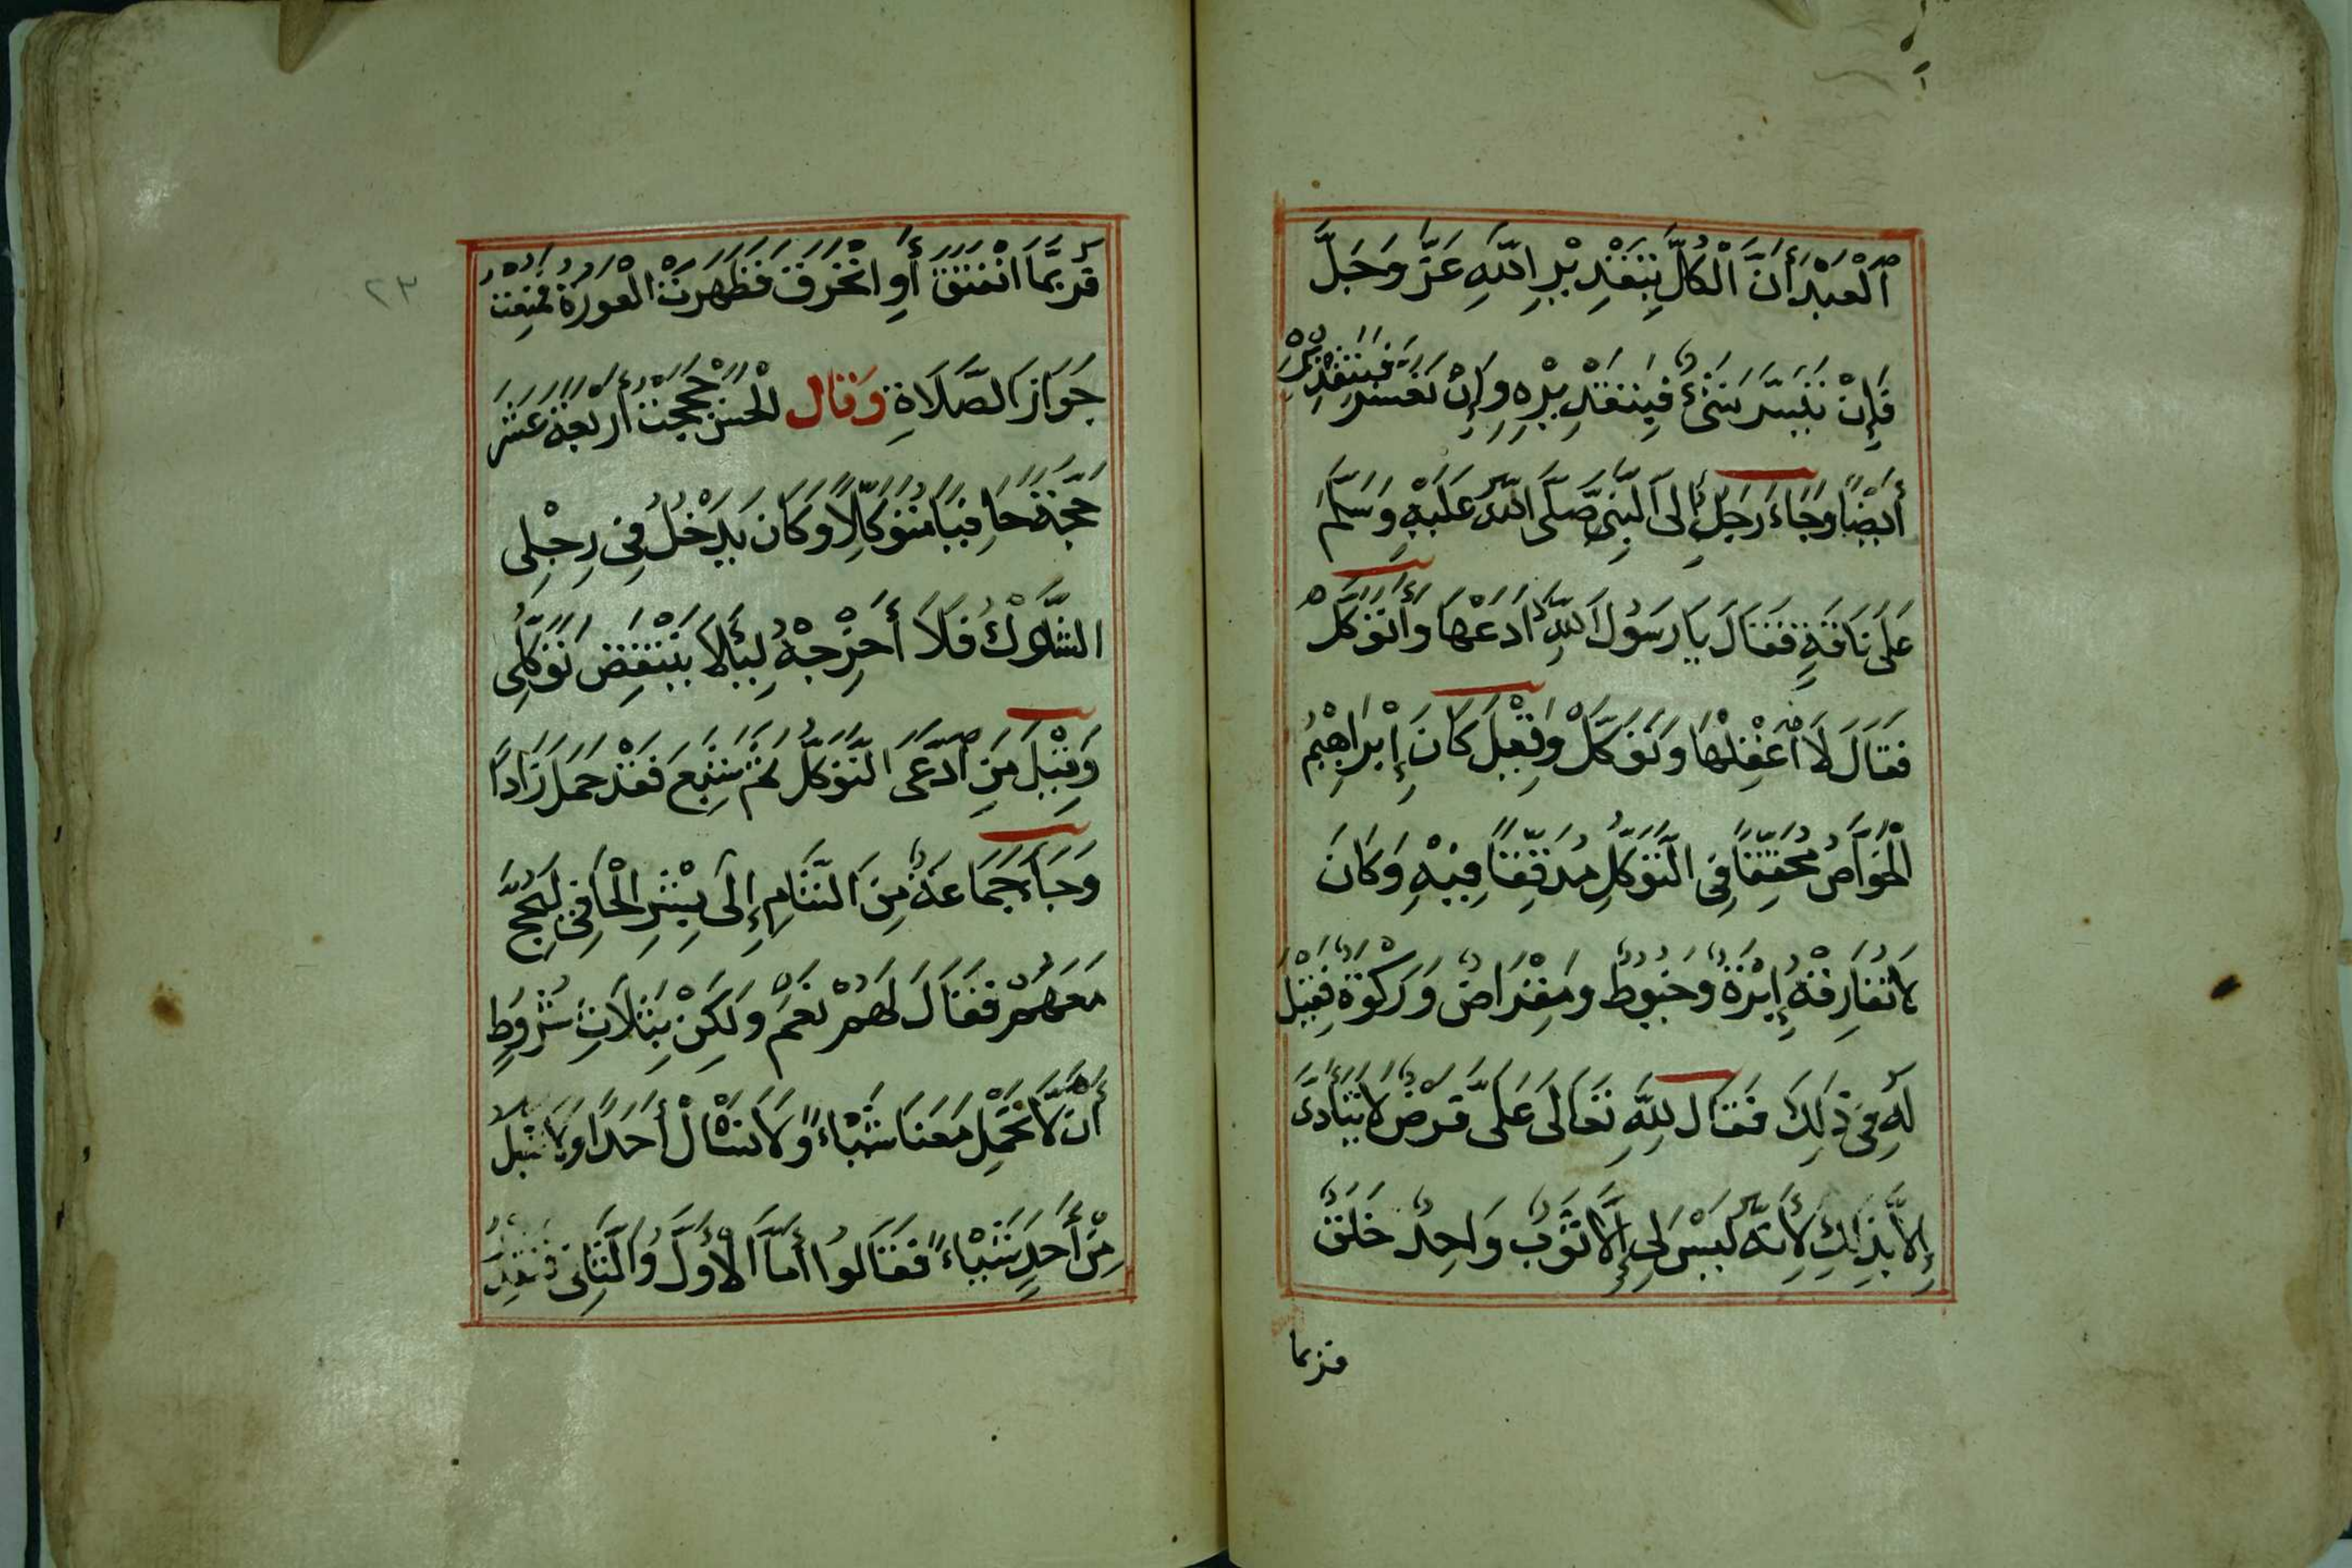 اَلْعَبْدُ أَنَّ الْكُلَّ بِتَقْدِيْرِ اللّٰهِ عَزَّ وَجَلَّ
فَإِنْ تَيَسَّرَ شَيْءٌ فَبِتَقْدِيْرِهِ وَإِنْ تَعَسَّرَ فَبِتَقْدِيْرِهِ
أَيْضًا وَجَاءَ رَجُلٌ إِلَى النَّبِيِّ صَلَّى اللّٰهُ عَلَيْهِ وَسَلَّمَ
عَلَى نَاقَةٍ فَقَالَ يَا رَسُوْلَ اللّٰهِ أَدَعُهَا وَأَتَوَكَّلُ
فَقَالَ لَا اعْقِلْهَا وَتَوَكَّلْ وَقِيْلَ كَانَ إِبْرَاهِيْمُ
الْخَوَّاصُ مُحَقِّقًا فِي التَّوَكُّلِ مُدَقِّقًا فِيْهِ وَكَانَ
لَا تُفَارِقُهُ إِبْرَةٌ وَخُيُوْطٌ وَمِقْرَاضٌ وَرَكْوَةٌ فَقِيْلَ
لَهُ فِي ذٰلِكَ فَقَالَ لِلّٰهِ تَعَالَى عَلَيَّ فَرْضٌ لَا يَتَأَدَّى
إِلَّا بِذٰلِكَ لِأَنَّهُ لَيْسَ لِي إِلَّا ثَوْبٌ وَاحِدٌ خَلَقٌ
فربما
٢٣
فَرُبَّمَا انْفَتَقَ أَوِ انْخَرَقَ فَظَهَرَتْ الْعَوْرَةُ فَمَنَعَتْ
جَوَازَ الصَّلَاةِ وَقَالَ الْحَسَنُ حَجَجْتُ أَرْبَعَةَ عَشَرَ
حَجَّةً حَافِيًا مُتَوَكِّلًا وَكَانَ يَدْخُلُ فِي رِجْلِي
الشَّوْكُ فَلَا أُخْرِجُهُ لِئَلَّا يَنْتَقِضَ تَوَكُّلِي
وَقِيْلَ مَنِ ادَّعَى التَّوَكُّلَ ثُمَّ شَبِعَ فَقَدْ حَمَلَ زَادًا
وَجَاءَ جَمَاعَةٌ مِنَ الشَّامِ إِلَى بِشْرِ الْحَافِي لِيَحُجَّ
مَعَهُمْ فَقَالَ لَهُمْ نَعَمْ وَلَكِنْ بِثَلَاثِ شُرُوْطٍ
أَنْ لَّا نَحْمِلَ مَعَنَا شَيْاءً وَلَا نَسْأَلْ أَحَدًا وَلَا نَقْبَلَ
مِنْ أَحَدٍ شَيْاءً فَقَالُوا أَمَّا الْأَوَّلُ وَالثَّانِي فَنَقْدِرُ